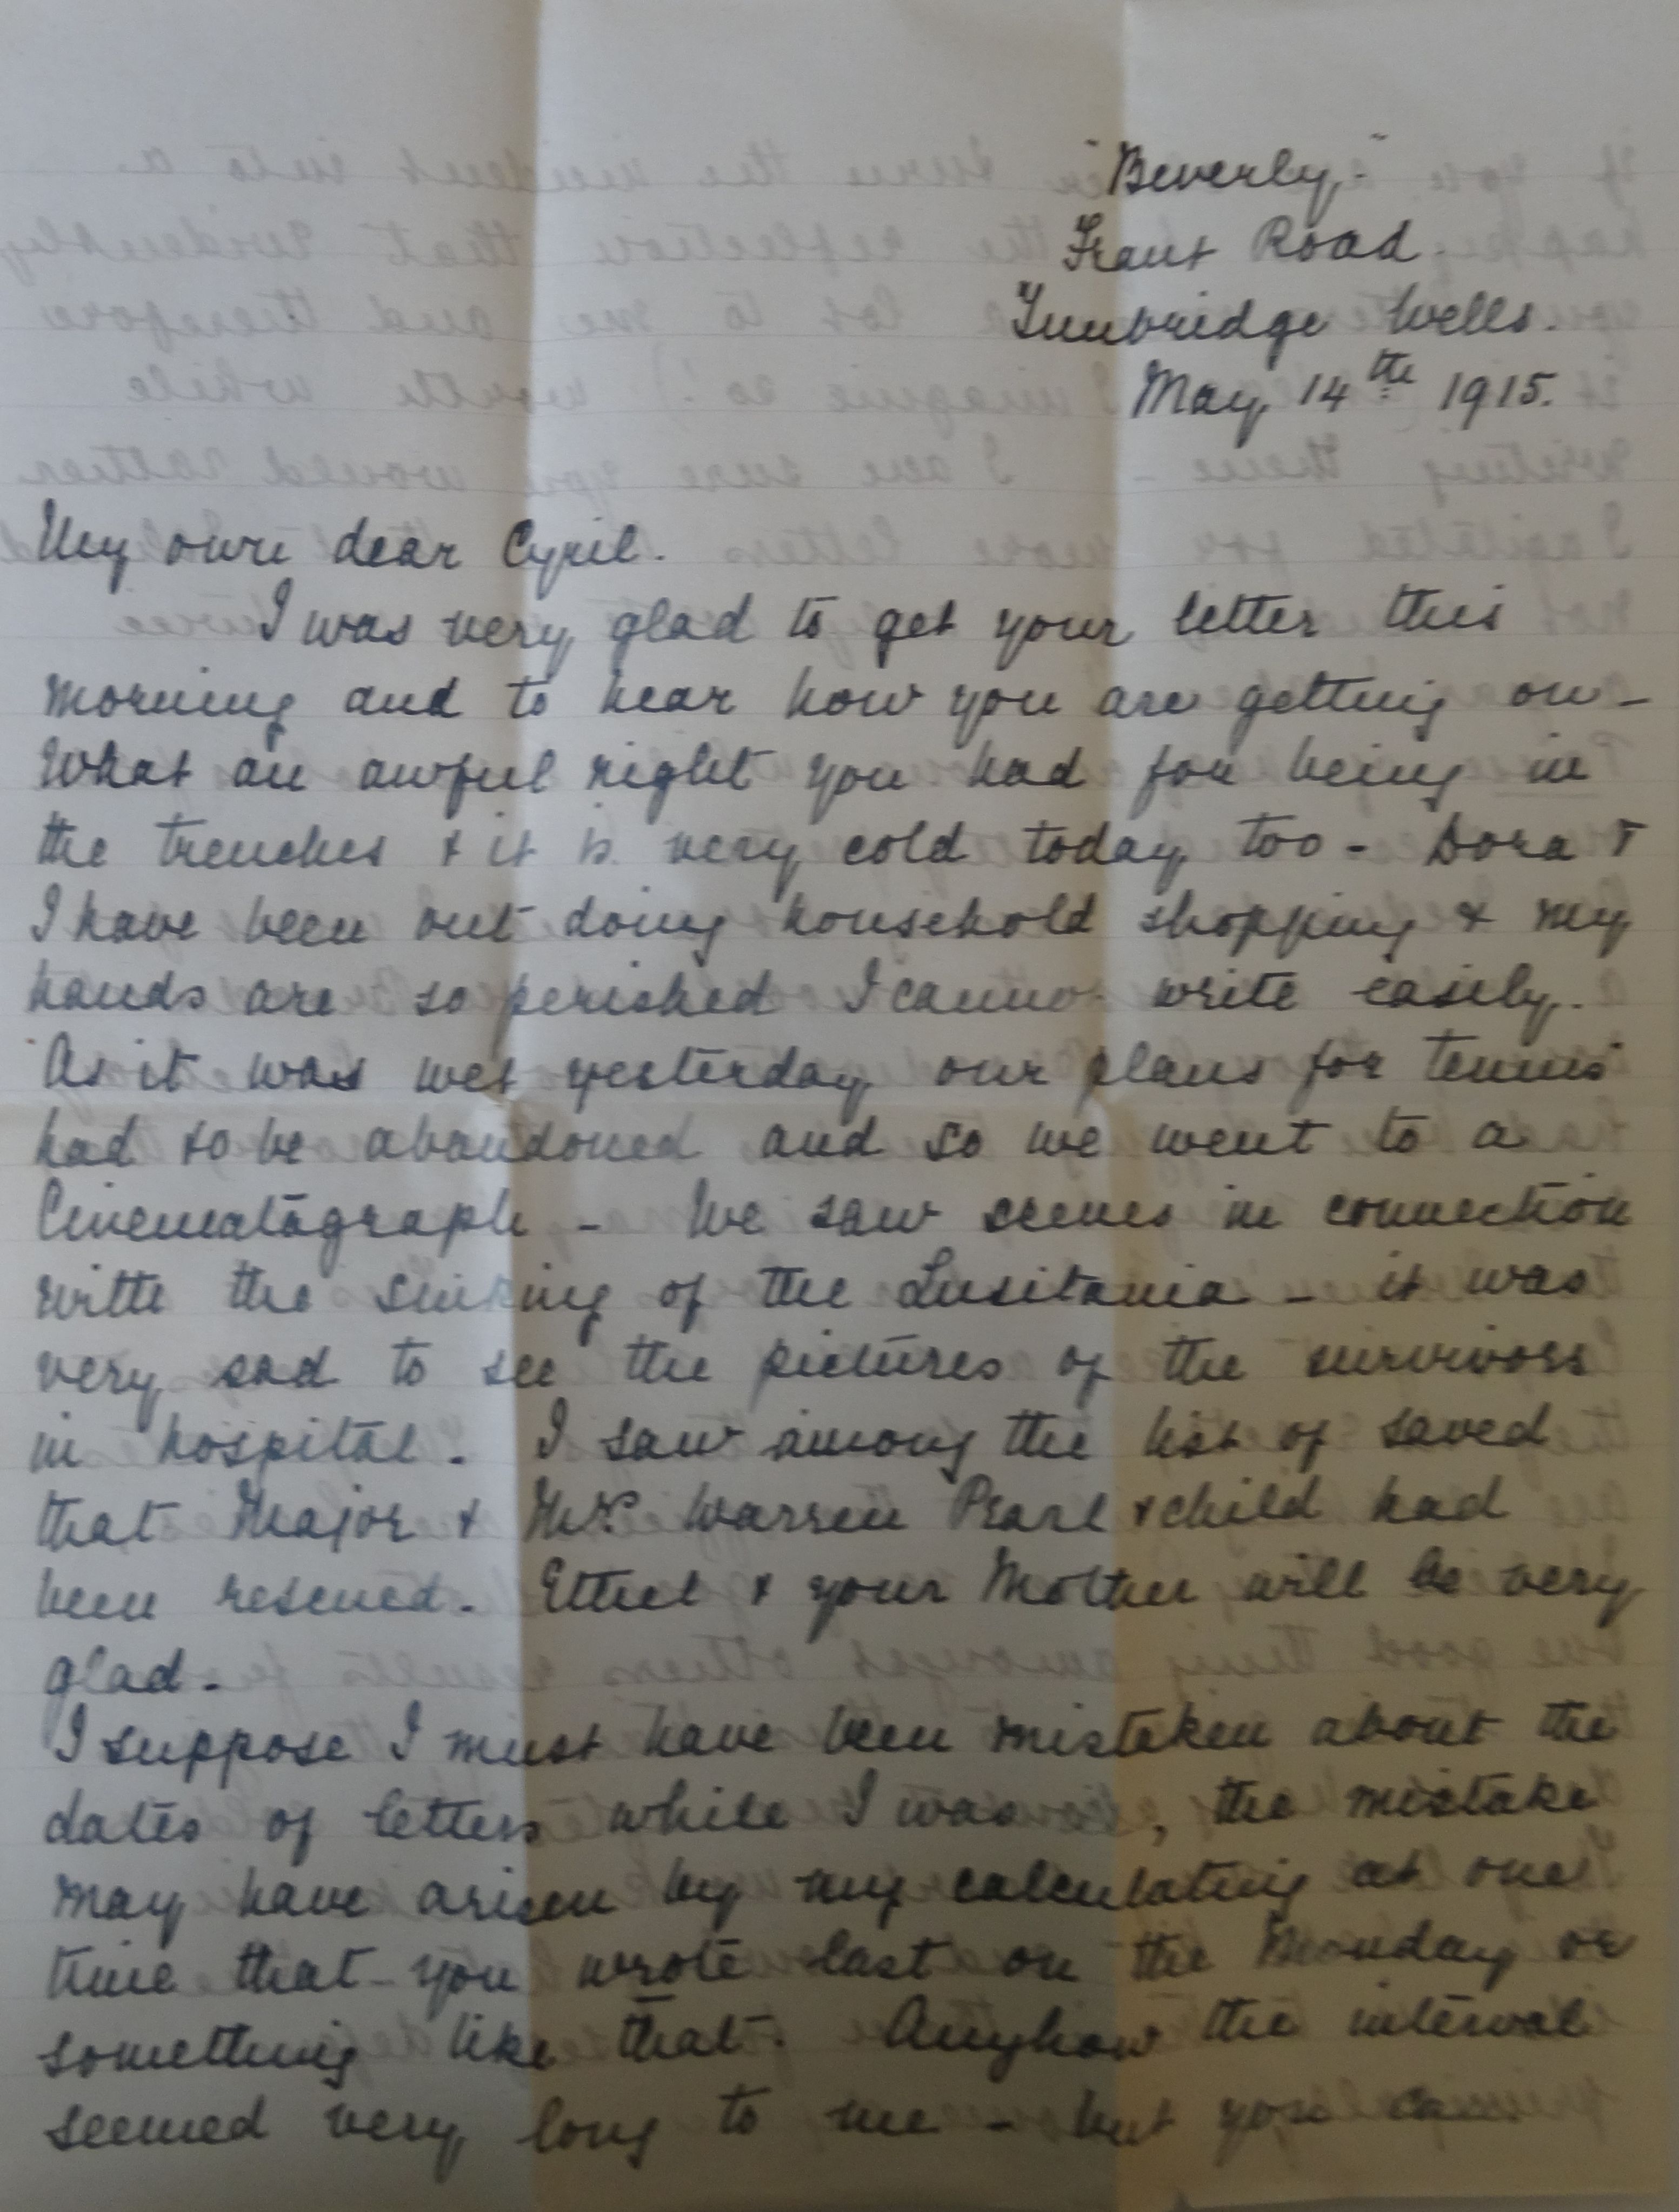 "Beverly,"
Frant Road.
Tunbridge Wells.
May 14th 1915.
My own dear Cyril.
I was very glad to get your letter this
morning and to hear how you are getting on -
What an awful night you had for being in
the trenches & it is very cold today too - Dora &
I have been out doing household shopping & my
hands are so perished I cannot write easily.
As it was wet yesterday our plans for tennis
had to be abandoned and so we went to a
Cinematograph - We saw scenes in connection
with the sinking of the Lusitania - it was
very sad to see the pictures of the survivors
in hospital. I saw among the list of saved
that Major & Mrs Warren Pearl & child had
been rescued. Ethel & your Mother will be very
glad.
I suppose I must have been mistaken about the
dates of letters while I was , the mistake
may have arisen by my calculating at one
time that you wrote last on the Monday or
something like that. Anyhow the interval
seemed very long to me - but you can